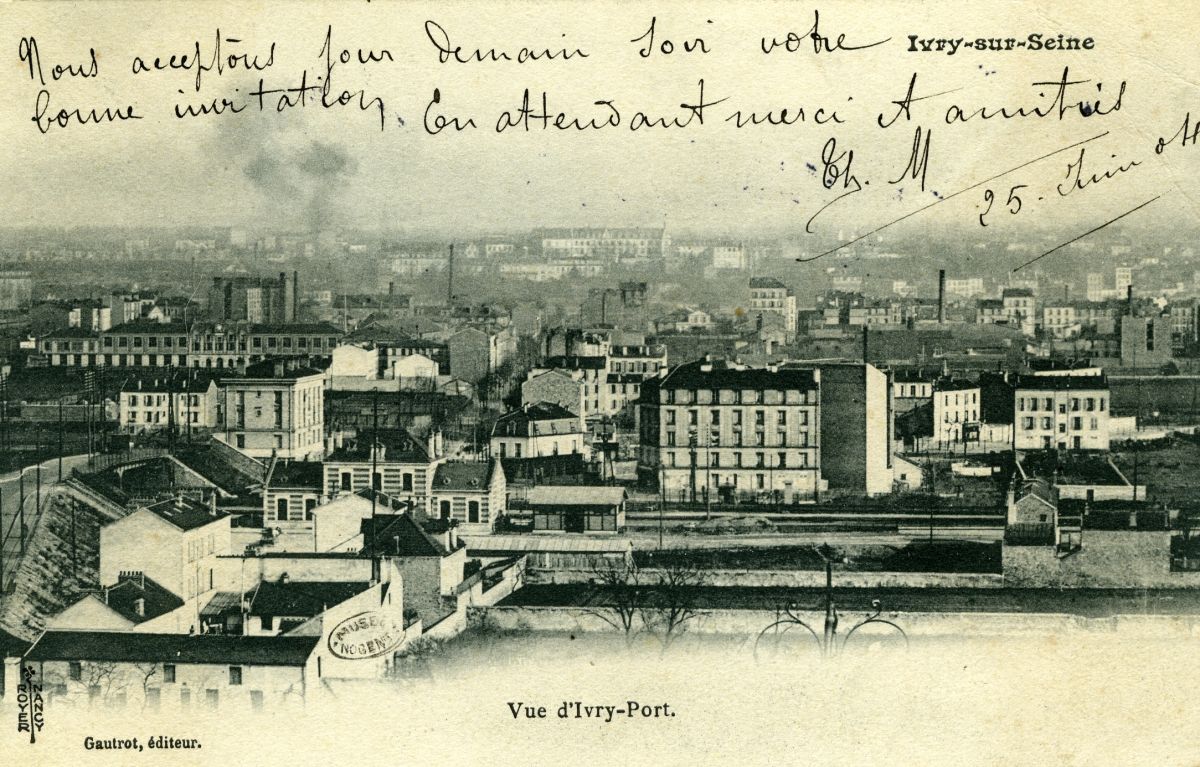 Ivry-sur-Seine
Nous acceptons pour demain soir votre
bonne invitation, En attendant merci et amitiés
Th. M
25. Juin 04
MUSEE
NOGENT
ROYER
NANCY
Vue d'Ivry-Port.
Gautrot, éditeur.